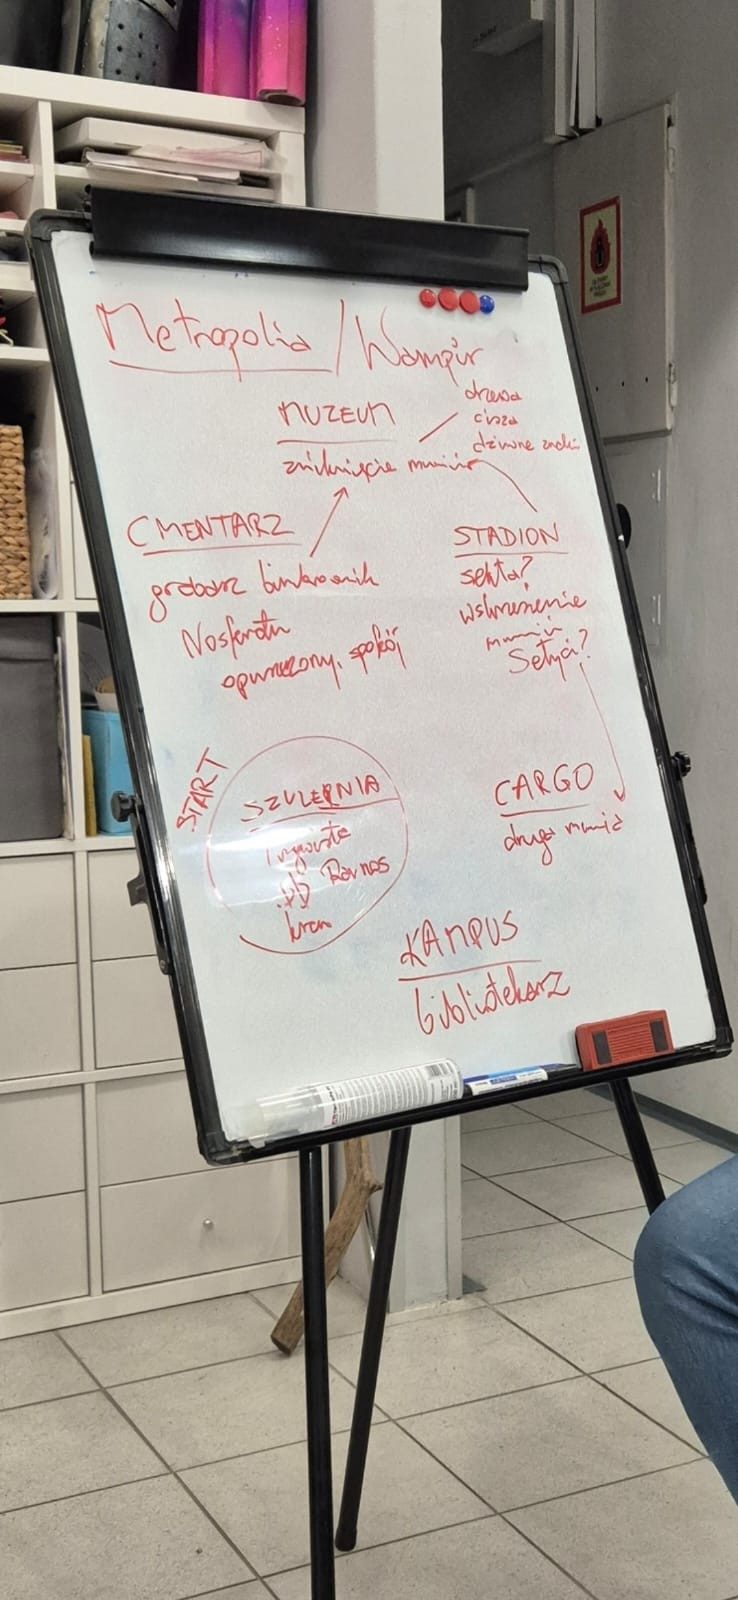 Metropolia / Wampir
MUZEUM
zniknięcie mumii
drzewa
cisza
dziwne znaki
CMENTARZ
grabarz
Nosferatu
opuszczony, spokój
STADION
sekta?
wskrzeszenie
mumii
Setyci?
START
SZULERNIA
Ravnos
CARGO
druga mumia
KAMPUS
bibliotekarz